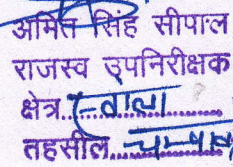 अमित सिंह सीपाल
राजस्व उपनिरीक्षक
क्षेत्र
तहसील